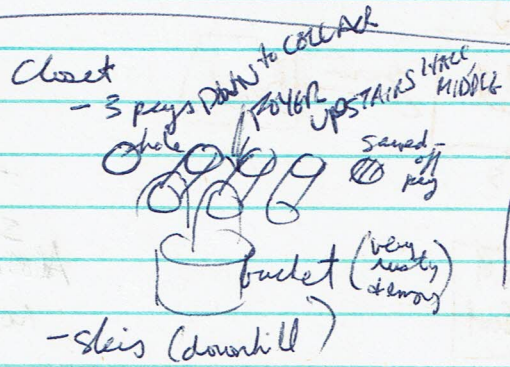 Closet
- 3 pegs DOWN to CELLAR
FOYER
UPSTAIRS HALL
MIDDLE
hole
sawed-
off
peg
bucket (very
rusty
& empty)
- skis (downhill)